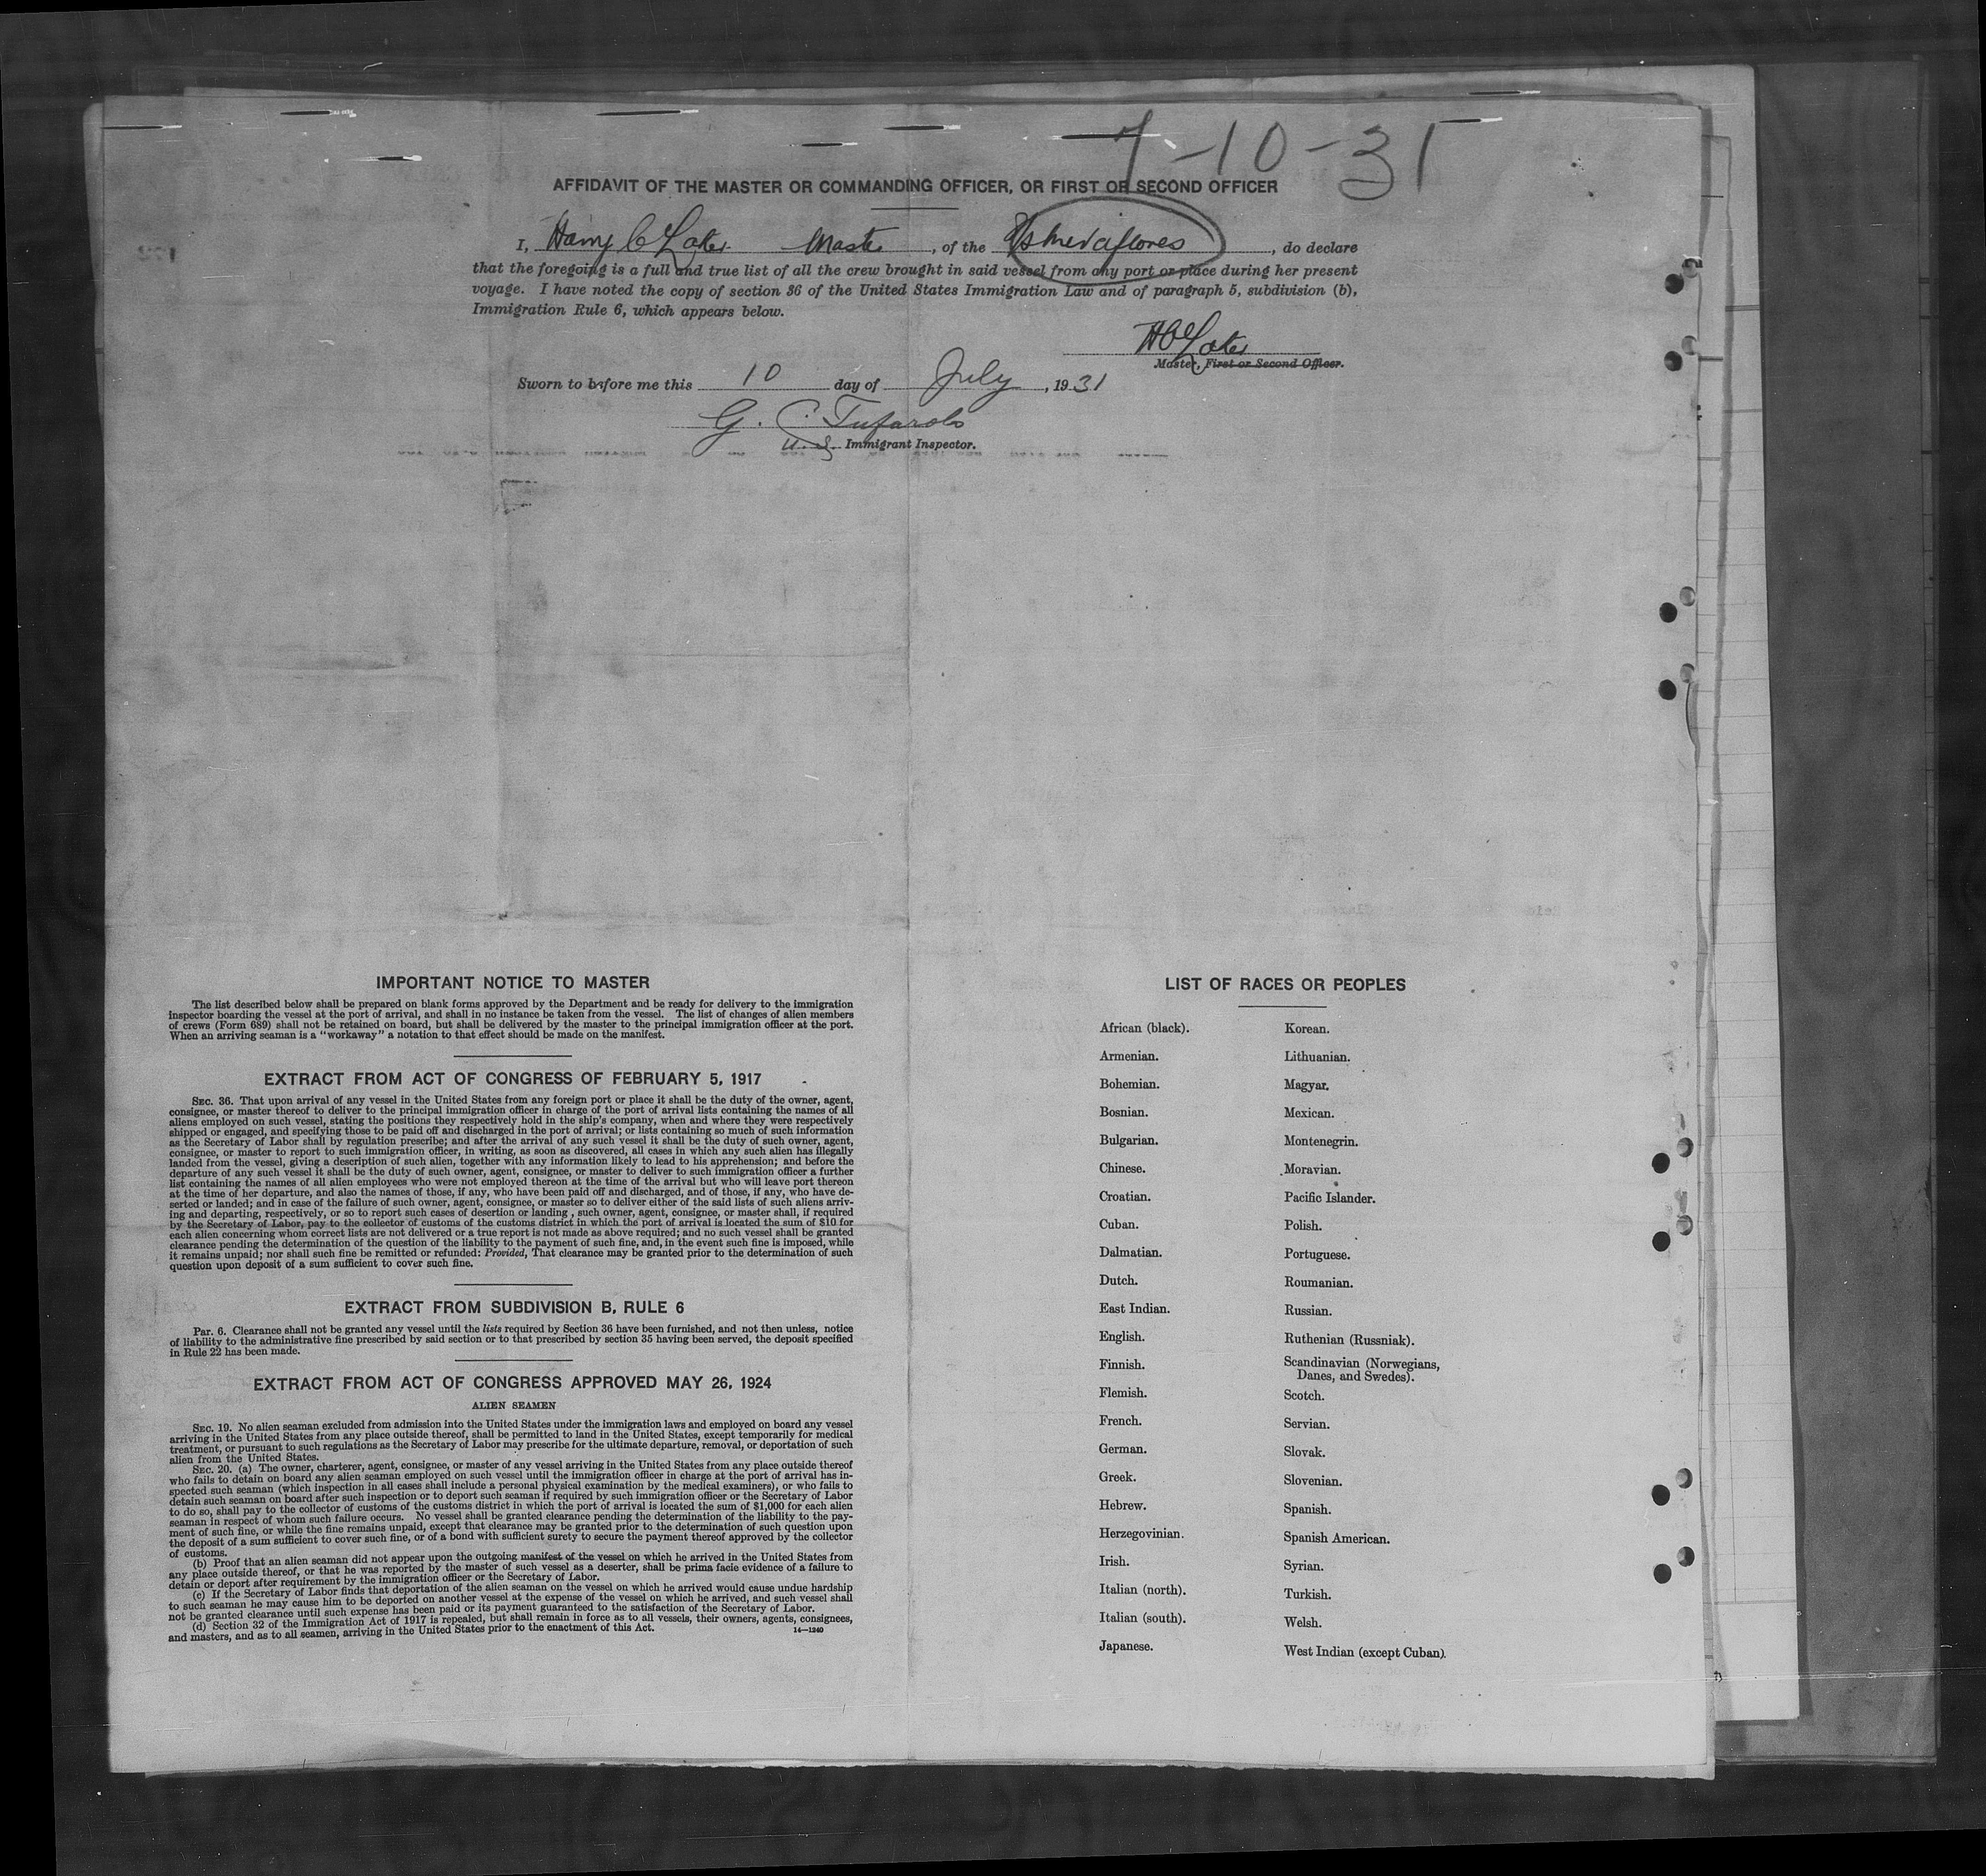 7-10-31
AFFIDAVIT OF THE MASTER OR COMMANDING OFFICER, OR FIRST OR SECOND OFFICER
I, Harry C Master, of the , do declare
that the foregoing is a full and true list of all the crew brought in said vessel from any port or place during her present
voyage. I have noted the copy of section 36 of the United States Immigration Law and of paragraph 5, subdivision (b),
Immigration Rule 6, which appears below.
Master, First or Second Officer.
Sworn to before me this 10 day of July, 1931
G. C.
U.S. Immigrant Inspector.
IMPORTANT NOTICE TO MASTER
The list described below shall be prepared on blank forms approved by the Department and be ready for delivery to the immigration
inspector boarding the vessel at the port of arrival, and shall in no instance be taken from the vessel. The list of changes of alien members
of crews (Form 689) shall not be retained on board, but shall be delivered by the master to the principal immigration officer at the port.
When an arriving seaman is a "workaway" a notation to that effect should be made on the manifest.
EXTRACT FROM ACT OF CONGRESS OF FEBRUARY 5, 1917
SEC. 36. That upon arrival of any vessel in the United States from any foreign port or place it shall be the duty of the owner, agent,
consignee, or master thereof to deliver to the principal immigration officer in charge of the port of arrival lists containing the names of all
aliens employed on such vessel, stating the positions they respectively hold in the ship's company, when and where they were respectively
shipped or engaged, and specifying those to be paid off and discharged in the port of arrival; or lists containing so much of such information
as the Secretary of Labor shall by regulation prescribe; and after the arrival of any such vessel it shall be the duty of such owner, agent,
consignee, or master to report to such immigration officer, in writing, as soon as discovered, all cases in which any such alien has illegally
landed from the vessel, giving a description of such alien, together with any information likely to lead to his apprehension; and before the
departure of any such vessel it shall be the duty of such owner, agent, consignee, or master to deliver to such immigration officer a further
list containing the names of all alien employees who were not employed thereon at the time of the arrival but who will leave port thereon
at the time of her departure, and also the names of those, if any, who have been paid off and discharged, and of those, if any, who have de-
serted or landed; and in case of the failure of such owner, agent, consignee, or master so to deliver either of the said lists of such aliens arriv-
ing and departing, respectively, or so to report such cases of desertion or landing , such owner, agent, consignee, or master shall, if required
by the Secretary of Labor, pay to the collector of customs of the customs district in which the port of arrival is located the sum of $10 for
each alien concerning whom correct lists are not delivered or a true report is not made as above required; and no such vessel shall be granted
clearance pending the determination of the question of the liability to the payment of such fine, and, in the event such fine is imposed, while
it remains unpaid; nor shall such fine be remitted or refunded: Provided, That clearance may be granted prior to the determination of such
question upon deposit of a sum sufficient to cover such fine.
EXTRACT FROM SUBDIVISION B, RULE 6
Par. 6. Clearance shall not be granted any vessel until the lists required by Section 36 have been furnished, and not then unless, notice
of liability to the administrative fine prescribed by said section or to that prescribed by section 35 having been served, the deposit specified
in Rule 22 has been made.
EXTRACT FROM ACT OF CONGRESS APPROVED MAY 26, 1924
ALIEN SEAMEN
SEC. 19. No alien seaman excluded from admission into the United States under the immigration laws and employed on board any vessel
arriving in the United States from any place outside thereof, shall be permitted to land in the United States, except temporarily for medical
treatment, or pursuant to such regulations as the Secretary of Labor may prescribe for the ultimate departure, removal, or deportation of such
alien from the United States.
SEC. 20. (a) The owner, charterer, agent, consignee, or master of any vessel arriving in the United States from any place outside thereof
who fails to detain on board any alien seaman employed on such vessel until the immigration officer in charge at the port of arrival has in-
spected such seaman (which inspection in all cases shall include a personal physical examination by the medical examiners), or who fails to
detain such seaman on board after such inspection or to deport such seaman if required by such immigration officer or the Secretary of Labor
to do so, shall pay to the collector of customs of the customs district in which the port of arrival is located the sum of $1,000 for each alien
seaman in respect of whom such failure occurs. No vessel shall be granted clearance pending the determination of the liability to the pay-
ment of such fine, or while the fine remains unpaid, except that clearance may be granted prior to the determination of such question upon
the deposit of a sum sufficient to cover such fine, or of a bond with sufficient surety to secure the payment thereof approved by the collector
of customs.
(b) Proof that an alien seaman did not appear upon the outgoing manifest of the vessel on which he arrived in the United States from
any place outside thereof, or that he was reported by the master of such vessel as a deserter, shall be prima facie evidence of a failure to
detain or deport after requirement by the immigration officer or the Secretary of Labor.
(c) If the Secretary of Labor finds that deportation of the alien seaman on the vessel on which he arrived would cause undue hardship
to such seaman he may cause him to be deported on another vessel at the expense of the vessel on which he arrived, and such vessel shall
not be granted clearance until such expense has been paid or its payment guaranteed to the satisfaction of the Secretary of Labor.
(d) Section 32 of the Immigration Act of 1917 is repealed, but shall remain in force as to all vessels, their owners, agents, consignees,
and masters, and as to all seamen, arriving in the United States prior to the enactment of this Act. 14—1240
LIST OF RACES OR PEOPLES
African (black).
Armenian.
Bohemian.
Bosnian.
Bulgarian.
Chinese.
Croatian.
Cuban.
Dalmatian.
Dutch.
East Indian.
English.
Finnish.
Flemish.
French.
German.
Greek.
Hebrew.
Herzegovinian.
Irish.
Italian (north).
Italian (south).
Japanese.
Korean.
Lithuanian.
Magyar.
Mexican.
Montenegrin.
Moravian.
Pacific Islander.
Polish.
Portuguese.
Roumanian.
Russian.
Ruthenian (Russniak).
Scandinavian (Norwegians,
Danes, and Swedes).
Scotch.
Servian.
Slovak.
Slovenian.
Spanish.
Spanish American.
Syrian.
Turkish.
Welsh.
West Indian (except Cuban).